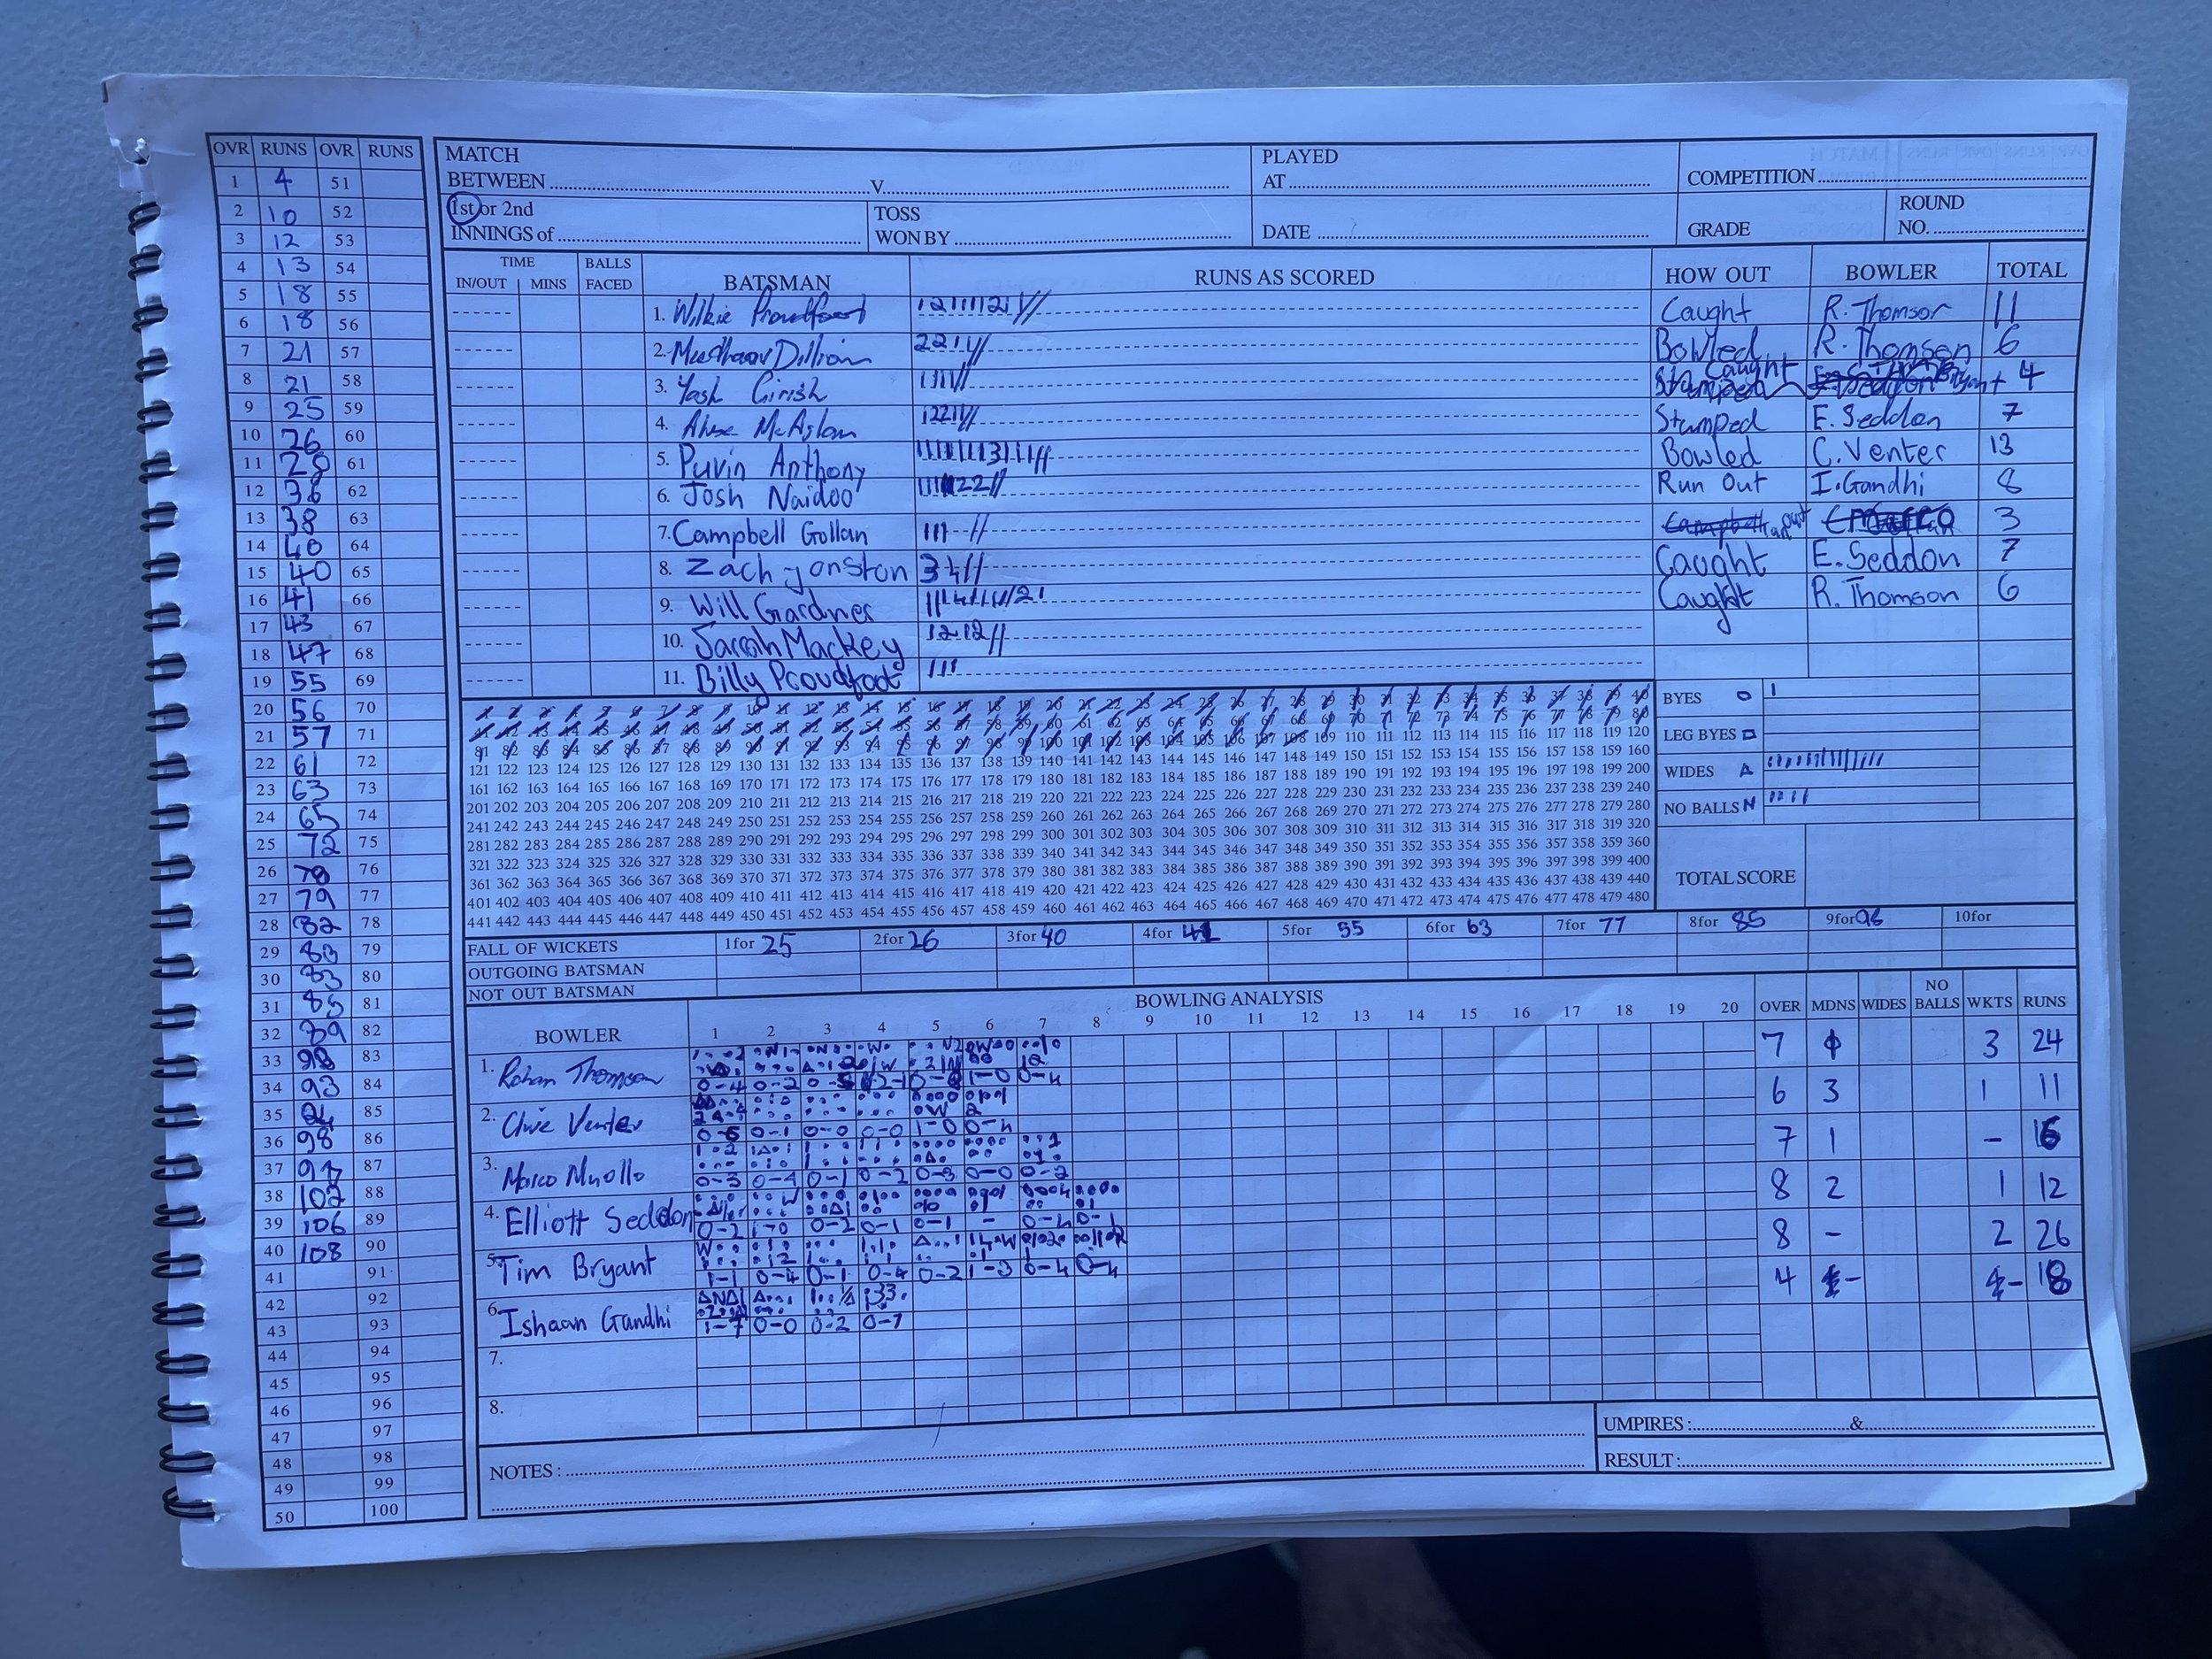 OVR RUNS OVR RUNS
1 4 51
2 10 52
3 12 53
4 13 54
5 18 55
6 18 56
7 21 57
8 21 58
9 25 59
10 26 60
11 28 61
12 36 62
13 38 63
14 40 64
15 40 65
16 41 66
17 43 67
18 47 68
19 55 69
20 56 70
21 57 71
22 61 72
23 63 73
24 65 74
25 72 75
26 76
27 79 77
28 82 78
29 83 79
30 83 80
31 85 81
32 89 82
33 83
34 93 84
35 85
36 98 86
37 87
38 102 88
39 106 89
40 108 90
41 91
42 92
43 93
44 94
45 95
46 96
47 97
48 98
49 99
50 100
MATCH
BETWEEN V.
PLAYED
AT
COMPETITION
1st or 2nd
INNINGS of
TOSS
WON BY
DATE
GRADE
ROUND
NO.
TIME BALLS
IN/OUT MINS FACED BATSMAN RUNS AS SCORED HOW OUT BOWLER TOTAL
1. Wilkie Proudfoot 12111121// Caught R. Thomson 11
2. Dillion 2211// Bowled R. Thomson 6
3. Yash Girish 1111// Caught Bryant 4
4. 1221// Stumped E. Seddon 7
5. Puvin Anthony Bowled C. Venter 13
6. Josh Naidoo Run Out I. Gandhi 8
7. Campbell Gollan 111 // 3
8. Zach Jonston 34// Caught E. Seddon 7
9. Will Gardner Caught R. Thomson 6
10. Sarrah Mackey 1212//
11. Billy Proudfoot 111
1 2 3 4 5 6 7 8 9 10 11 12 13 14 15 16 17 18 19 20 21 22 23 24 25 26 27 28 29 30 31 32 33 34 35 36 37 38 39 40
41 42 43 44 45 46 47 48 49 50 51 52 53 54 55 56 57 58 59 60 61 62 63 64 65 66 67 68 69 70 71 72 73 74 75 76 77 78 79 80
81 82 83 84 85 86 87 88 89 90 91 92 93 94 95 96 97 98 99 100 101 102 103 104 105 106 107 108 109 110 111 112 113 114 115 116 117 118 119 120
121 122 123 124 125 126 127 128 129 130 131 132 133 134 135 136 137 138 139 140 141 142 143 144 145 146 147 148 149 150 151 152 153 154 155 156 157 158 159 160
161 162 163 164 165 166 167 168 169 170 171 172 173 174 175 176 177 178 179 180 181 182 183 184 185 186 187 188 189 190 191 192 193 194 195 196 197 198 199 200
201 202 203 204 205 206 207 208 209 210 211 212 213 214 215 216 217 218 219 220 221 222 223 224 225 226 227 228 229 230 231 232 233 234 235 236 237 238 239 240
241 242 243 244 245 246 247 248 249 250 251 252 253 254 255 256 257 258 259 260 261 262 263 264 265 266 267 268 269 270 271 272 273 274 275 276 277 278 279 280
281 282 283 284 285 286 287 288 289 290 291 292 293 294 295 296 297 298 299 300 301 302 303 304 305 306 307 308 309 310 311 312 313 314 315 316 317 318 319 320
321 322 323 324 325 326 327 328 329 330 331 332 333 334 335 336 337 338 339 340 341 342 343 344 345 346 347 348 349 350 351 352 353 354 355 356 357 358 359 360
361 362 363 364 365 366 367 368 369 370 371 372 373 374 375 376 377 378 379 380 381 382 383 384 385 386 387 388 389 390 391 392 393 394 395 396 397 398 399 400
401 402 403 404 405 406 407 408 409 410 411 412 413 414 415 416 417 418 419 420 421 422 423 424 425 426 427 428 429 430 431 432 433 434 435 436 437 438 439 440
441 442 443 444 445 446 447 448 449 450 451 452 453 454 455 456 457 458 459 460 461 462 463 464 465 466 467 468 469 470 471 472 473 474 475 476 477 478 479 480
BYES 1
LEG BYES
WIDES
NO BALLS N
TOTAL SCORE
FALL OF WICKETS 1for 25 2for 26 3for 40 4for 41 5for 55 6for 63 7for 77 8for 85 9for 98 10for
OUTGOING BATSMAN
NOT OUT BATSMAN
BOWLING ANALYSIS
BOWLER 1 2 3 4 5 6 7 8 9 10 11 12 13 14 15 16 17 18 19 20 OVER MDNS WIDES NO BALLS WKTS RUNS
1. Rohan Thomson 7 3 24
0-4 0-2 1-0 0-4
2. Clive Venter 6 3 1 11
0-6 0-1 0-0 0-0 1-0 0-4
3. Marco Muollo 7 1 - 16
0-3 0-4 0-1 0-2 0-3 0-0 0-2
4. Elliott Seddon 8 2 1 12
0-2 1-0 0-2 0-1 0-1 - 0-4 0-1
5. Tim Bryant 8 - 2 26
1-1 0-4 0-1 0-4 0-2 1-3 0-4 0-4
6. Ishaan Gandhi 4 - - 18
1-7 0-0 0-2 0-7
7.
8.
NOTES :
UMPIRES : &
RESULT :